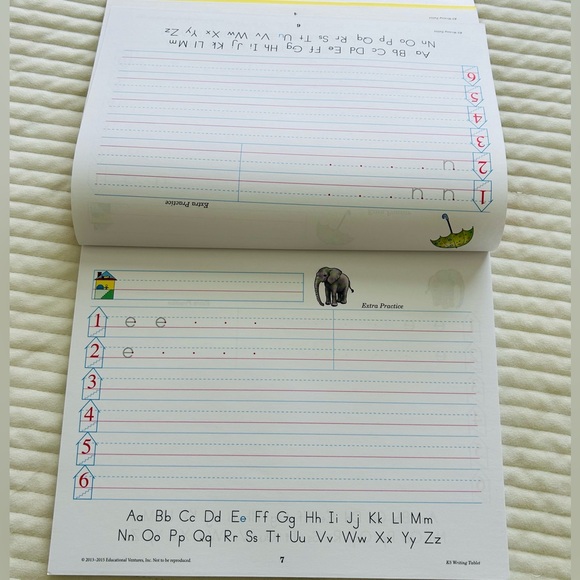 Extra Practice
1 u u . . . .
2 u . . . .
3
4
5
6
Aa Bb Cc Dd Ee Ff Gg Hh Ii Jj Kk Ll Mm
Nn Oo Pp Qq Rr Ss Tt Uu Vv Ww Xx Yy Zz
6
Extra Practice
1 e e . . .
2 e . . . .
3
4
5
6
Aa Bb Cc Dd Ee Ff Gg Hh Ii Jj Kk Ll Mm
Nn Oo Pp Qq Rr Ss Tt Uu Vv Ww Xx Yy Zz
© 2013–2015 Educational Ventures, Inc. Not to be reproduced.
7
K5 Writing Tablet